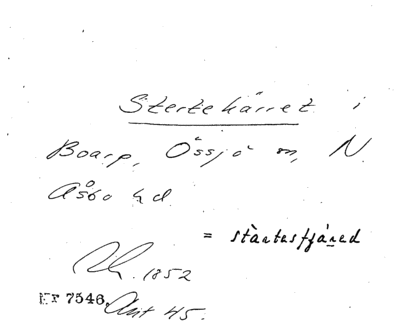 Stertekärret i
Boarp, Össjö sn, N.
Åsbo hd
= stàrtesfjáred
1852
Nr 7546. Ant 45.